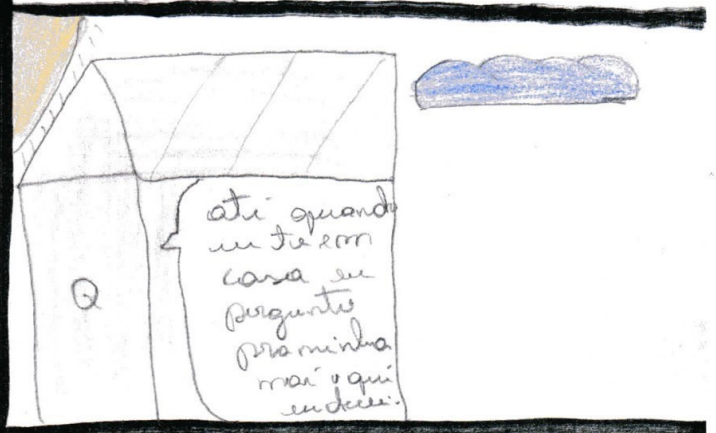 ati quando
eu tu em
casa eu
pergunto
pra minha
mai o qui
eu